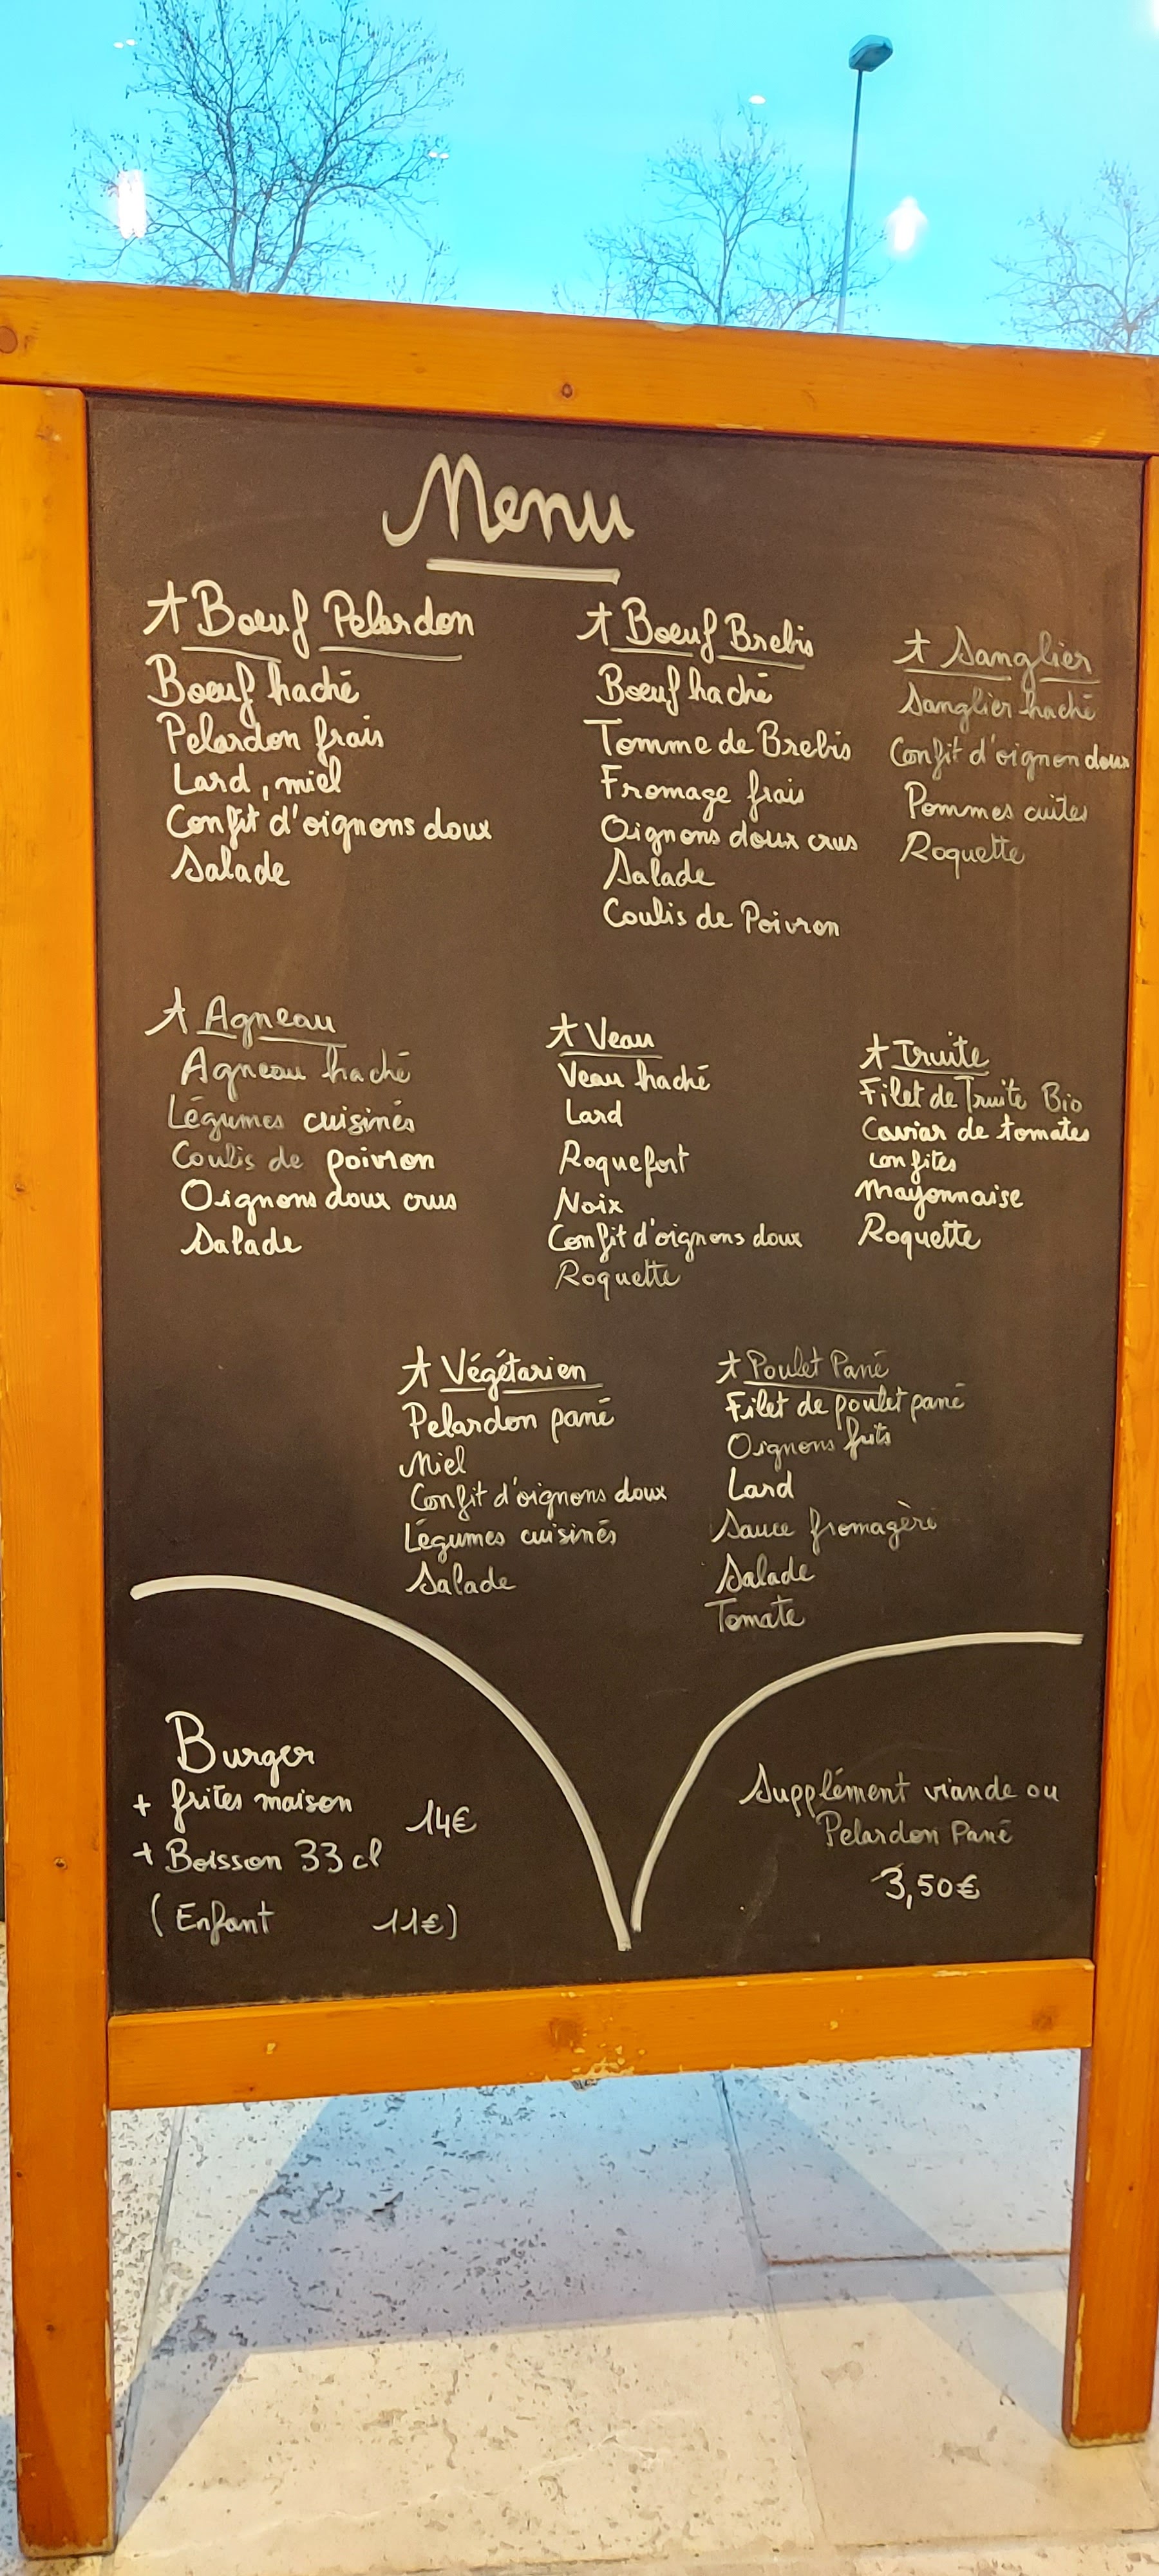 Menu
* Boeuf Pelardon
Boeuf haché
Pelardon frais
Lard, miel
Confit d'oignons doux
Salade
* Boeuf Brebis
Boeuf haché
Tomme de Brebis
Fromage frais
Oignons doux crus
Salade
Coulis de Poivron
* Sanglier
Sanglier haché
Confit d'oignon doux
Pommes cuites
Roquette
* Agneau
Agneau haché
Légumes cuisinés
Coulis de poivron
Oignons doux crus
Salade
* Veau
Veau haché
Lard
Roquefort
Noix
Confit d'oignons doux
Roquette
* Truite
Filet de Truite Bio
Caviar de tomates
confites
Mayonnaise
Roquette
* Végétarien
Pelardon pané
Miel
Confit d'oignons doux
Légumes cuisinés
Salade
* Poulet Pané
Filet de poulet pané
Oignons frits
Lard
Sauce fromagère
Salade
Tomate
Burger
+ frites maison
14€
+ Boisson 33cl
(Enfant 11€)
Supplément viande ou
Pelardon Pané
3,50€